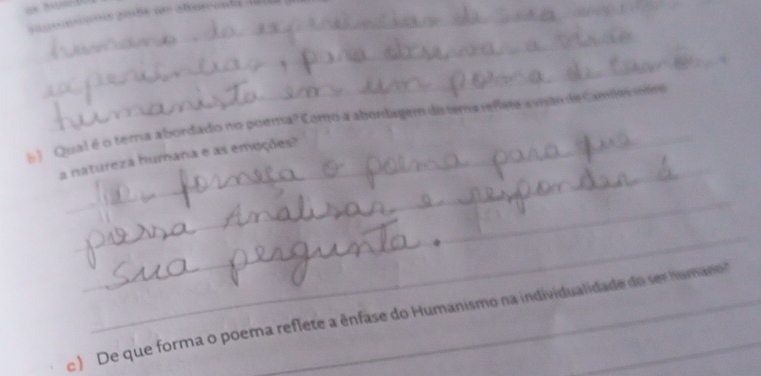 humano. da experiências de sua
experiências, para observar a visão
humanista em um poema de Camões.
b) Qual é o tema abordado no poema? Como a abordagem do tema reflete a visão de Camões sobre
a natureza humana e as emoções?
forneça o poema para que
possa Analisar e responder à
sua pergunta.
c) De que forma o poema reflete a ênfase do Humanismo na individualidade do ser humano?